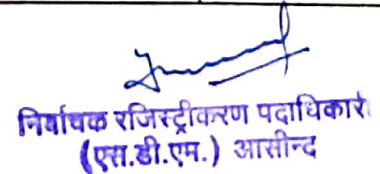 निर्वाचक रजिस्ट्रीकरण पदाधिकारी
(एस.डी.एम.) आसीन्द